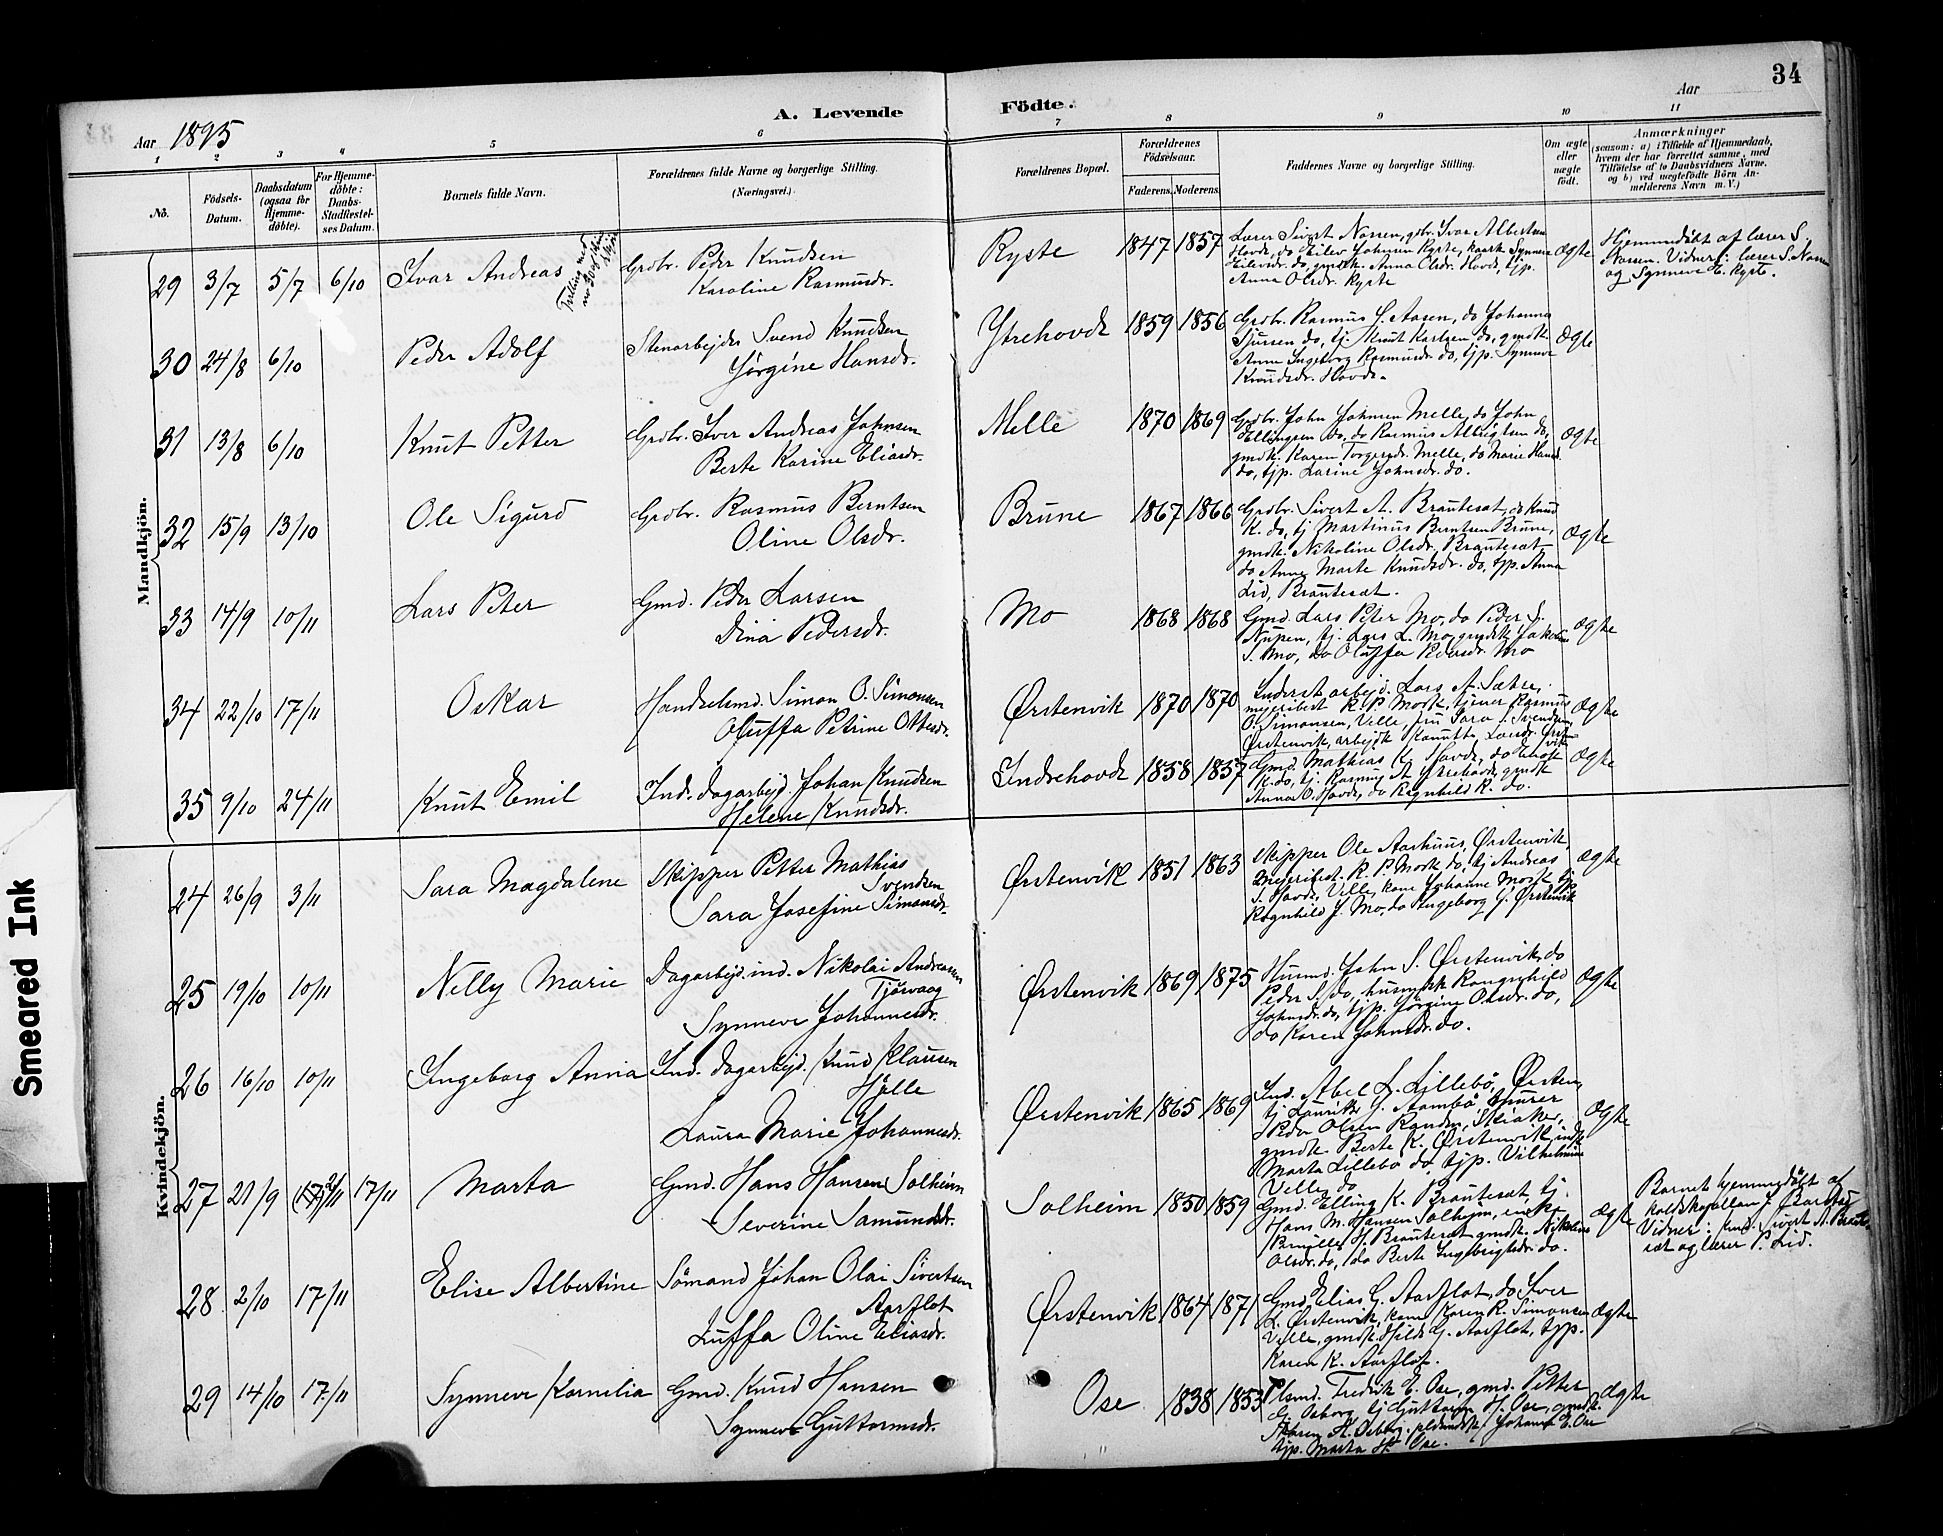 34
A. Levende Födte.
Aar 1895
Aar
1 2 3 4 5 6 7 8 9 10 11
No.
Födsels-Datum.
Daabsdatum (ogsaa for Hjemme-döbte).
For Hjemme-döbte: Daabs-Stadfæstel-ses Datum.
Barnets fulde Navn.
Forældrenes fulde Navne og borgerlige Stilling. (Næringsvei.)
Forældrenes Bopæl.
Forældrenes Födselsaar.
Faderens. Moderens.
Faddernes Navne og borgerlige Stilling.
Om ægte eller uægte födt.
Anmærkninger
(saasom: a) i Tilfælde af Hjemmedaab, hvem der har forrettet samme, med Tilföielse af to Daabsvidners Navne, og b) ved uægtefödte Börn An-melderens Navn m. V.)
Mandkjön.
29 3/7 5/7 6/10 Ivar Andreas
Grdbr. Peder Knudsen
Karoline Rasmusdr.
Ryste 1847 1857
Lærer Sivert Nossen, gdbr. Ivar Albertsen
Hovde, do Eilev Johnsen Ryste, Synneve
Eilevsdr. do, gmdk. Anna Olsdr. Hovde, tjp.
Anne Olsdr. Ryste
Ægte
Hjemmedöbt af lærer S.
Nossen. Vidner: lærer S. Nossen
og Synneve E. Ryste.
30 24/8 6/10 Peder Adolf
Stenarbejder Svend Knudsen
Jørgine Hansdr.
Ytrehovde 1859 1856
Grdbr. Rasmus S. Aasen, do Johannes
Sjursen do, tj. Knut Karlsen do, gmdk.
Anne Ingeborg Rasmusdr. do, tjp. Synneve
Knudsdr. Hovde.
Ægte
31 13/8 6/10 Knut Petter
Grdbr. Iver Andreas Johnsen
Berte Karine Eliasdr.
Melle 1870 1869
Grdbr. John Johnsen Melle, do John
Ellingsen do, do Rasmus Albrigtsen do,
gmdk. Karen Torgersdr. Melle, do Marie Hansd.
do, tjp. Larine Johnsdr. do.
Ægte
32 15/9 13/10 Ole Sigurd
Grdbr. Rasmus Berntsen
Oline Olsdr.
Brune 1867 1866
Grdbr. Sivert A. Brautesæt, do Knud
K. do, tj Martinus Berntsen Brune,
gmdk. Nikoline Olsdr. Brautesæt
do Anne Marte Knudsdr. do, tjp. Anna
Lid, Brautesæt.
Ægte
33 14/9 10/11 Lars Peter
Gmd. Peder Larsen
Dina Pedersdr.
Mo 1868 1868
Gmd. Lars Peter Mo, do Peder S.
Nupen, tj. Lars L. Mo, gmdk Jakobine
S. Mo, do Oluffa Pedersdr. Mo
Ægte
34 22/10 17/11 Oskar
Handelsmd. Simon O. Simonsen
Oluffa Petrine Ottesdr.
Ørstenvik 1870 1870
arbejd. Lars A. Sætre,
mejeribest. R. P. Mork, tjener Rasmus
O. Simonsen, Velle, fru Sara J. Svendsen,
Ørstenvik, arbejdk Knutta Larsdr. Ørsten-
vik
Ægte
35 9/10 24/11 Knut Emil
Ind. dagarbejd. Johan Knudsen
Helene Knudsdr.
Indrehovde 1858 1857
Gmd. Mathias K. Hovde, do Knut
K. do, tj. Rasmus A. Ytrehovde, gmdk
Anna O. Hovde, do Ragnhild K. do.
Ægte
Kvindekjön.
24 26/9 3/11 Sara Magdalene
Skipper Petter Mathias
Svendsen
Sara Josefine Simonsdr.
Ørstenvik 1851 1863
Skipper Ole Aarhuus, Ørstenvik,
Mejeribest. R. P. Mork do, tj Andreas
S. Hovde, Velle, kone Johanne Mork, tjp
Ragnhild J. Mo, do Ingeborg G. Ørstenvik
Ægte
25 19/10 10/11 Nelly Marie
Dagarbejd. ind. Nikolai Andreassen
Tjørvaag
Synneve Johannesdr.
Ørstenvik 1869 1875
Husmd. John S. Ørstenvik, do
Peder S. do, husmdk Rangnhild
Johnsdr. do, tjp. Jørgine Olsdr. do,
do Karen Johnsdr. do.
Ægte
26 16/10 10/11 Ingeborg Anna
Ind. dagarbejd. Knud Klausen
Hjelle
Laura Marie Johannesdr.
Ørstenvik 1865 1869
Ind. Abel L. Lillebö, Ørsten,
tj Laurits J. Aambö, murer
Peder Olsen Randen, Skiaker,
gmdk. Berte K. Ørstenvik, indk
Marta Lillebö do, tjp. Vilhelmine
Velle do
Ægte
27 21/9 (17/11) 2/11 17/11 Marta
Gmd. Hans Hansen Solheim
Severine Samundsdr.
Solheim 1850 1859
Gmd. Elling K. Brautesæt, tj.
Hans M. Hansen Solheim, enke
Pernille H. Brautesæt gmdk. Nikoline
Olsdr. do, do Berte Ingebrigtsdr. do.
Ægte
Barnet hjemmedöbt af
J. Barstad
Vidner: Sivert A. Braute-
sæt og lærer P. Lid.
28 2/10 17/11 Elise Albertine
Sömand Johan Olai Sivertsen
Aarflot
Luffa Oline Eliasdr.
Ørstenvik 1864 1871
Gmd Elias G. Aarflot, do Iver
L. Ørstenvik, kone Karen R. Simonsen
Velle, gmdk. Hilde G. Aarflot, tjp.
Karen K. Aarflot.
Ægte
29 14/10 17/11 Synneve Kornelia
Gmd. Knud Hansen
Synneve Guttormsdr.
Ose 1838 1853
Fredrik E. Ose, gmd. Petter
G. Osborg tj Guttorm H. Ose, gmdk.
Maren A. Osborg, Johanne E. Ose
tjp. Marta H. Ose.
Ægte
Smeared Ink